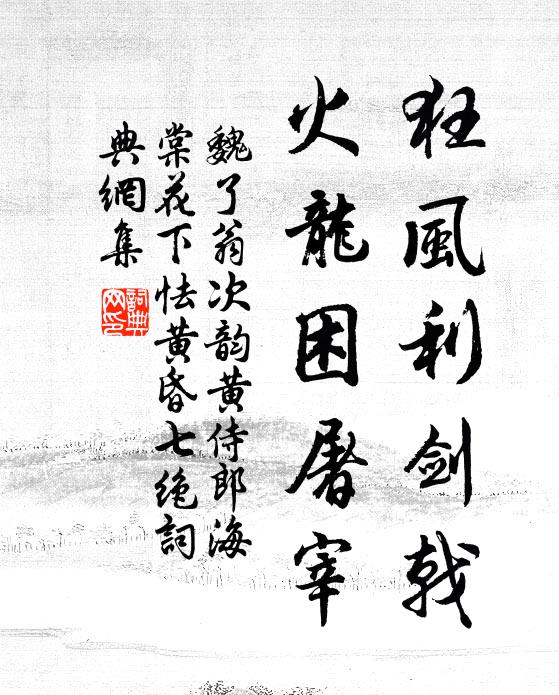 狂風利劍戟
火龍困屠宰
魏了翁次韵黄侍郎海
棠花下怯黄昏七绝詞
典網集
詞典
网印